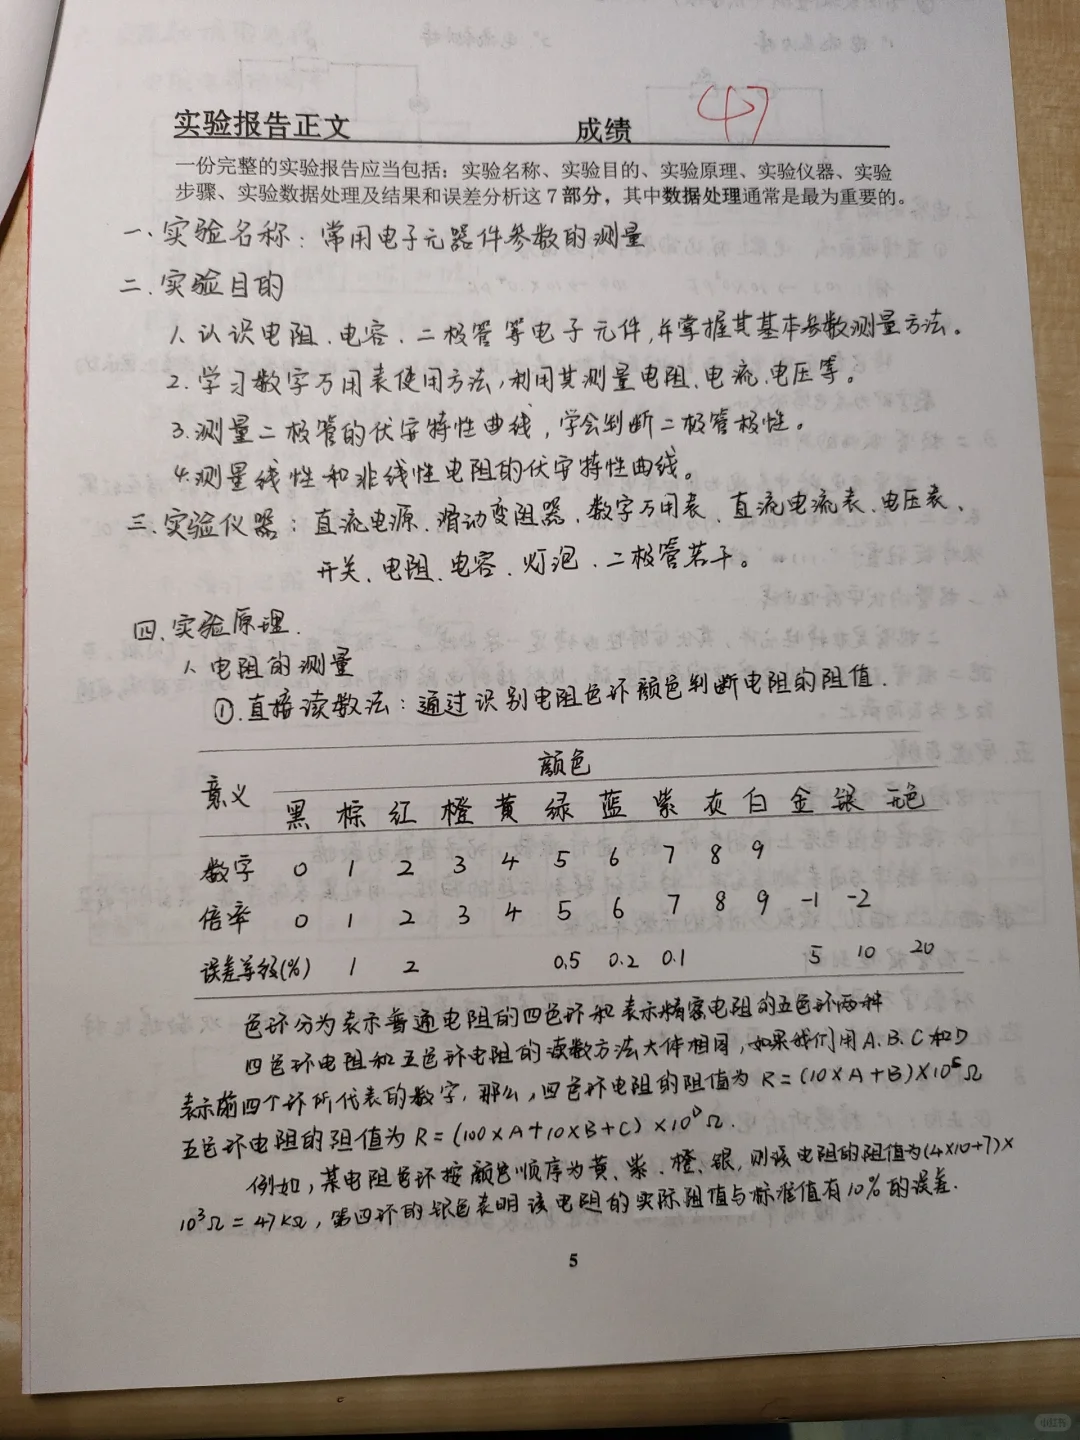 实验报告正文 成绩 47
一份完整的实验报告应当包括：实验名称、实验目的、实验原理、实验仪器、实验
步骤、实验数据处理及结果和误差分析这 7 部分，其中数据处理通常是最为重要的。
一、实验名称：常用电子元器件参数的测量
二、实验目的
1. 认识电阻、电容、二极管等电子元件，并掌握其基本参数测量方法。
2. 学习数字万用表使用方法，利用其测量电阻、电流、电压等。
3. 测量二极管的伏安特性曲线，学会判断二极管极性。
4. 测量线性和非线性电阻的伏安特性曲线。
三、实验仪器：直流电源、滑动变阻器、数字万用表、直流电流表、电压表、
开关、电阻、电容、灯泡、二极管若干。
四、实验原理.
1. 电阻的测量
①. 直接读数法：通过识别电阻色环颜色判断电阻的阻值.
意义 颜色
黑 棕 红 橙 黄 绿 蓝 紫 灰 白 金 银 无色
数字 0 1 2 3 4 5 6 7 8 9
倍率 0 1 2 3 4 5 6 7 8 9 -1 -2
误差等级(%) 1 2 0.5 0.2 0.1 5 10 20
色环分为表示普通电阻的四色环和表示精密电阻的五色环两种
四色环电阻和五色环电阻的读数方法大体相同，如果我们用A、B、C和D
表示前四个环所代表的数字，那么，四色环电阻的阻值为 R=(10×A+B)×10^C Ω
五色环电阻的阻值为 R=(100×A+10×B+C)×10^D Ω.
例如，某电阻色环按颜色顺序为黄、紫、橙、银，则该电阻的阻值为(4×10+7)×
10³Ω=47kΩ，第四环的银色表明该电阻的实际阻值与标准值有10%的误差.
5
小红书